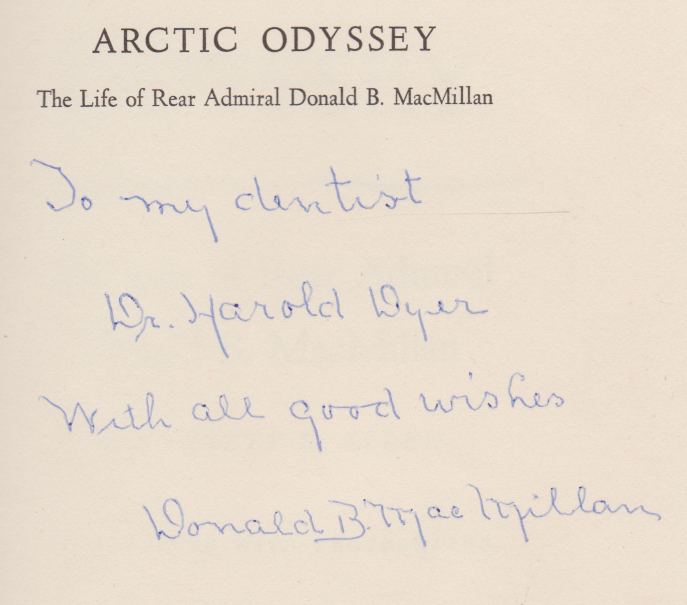 ARCTIC ODYSSEY
The Life of Rear Admiral Donald B. MacMillan
To my dentist
Dr. Harold Dyer
With all good wishes
Donald B. MacMillan